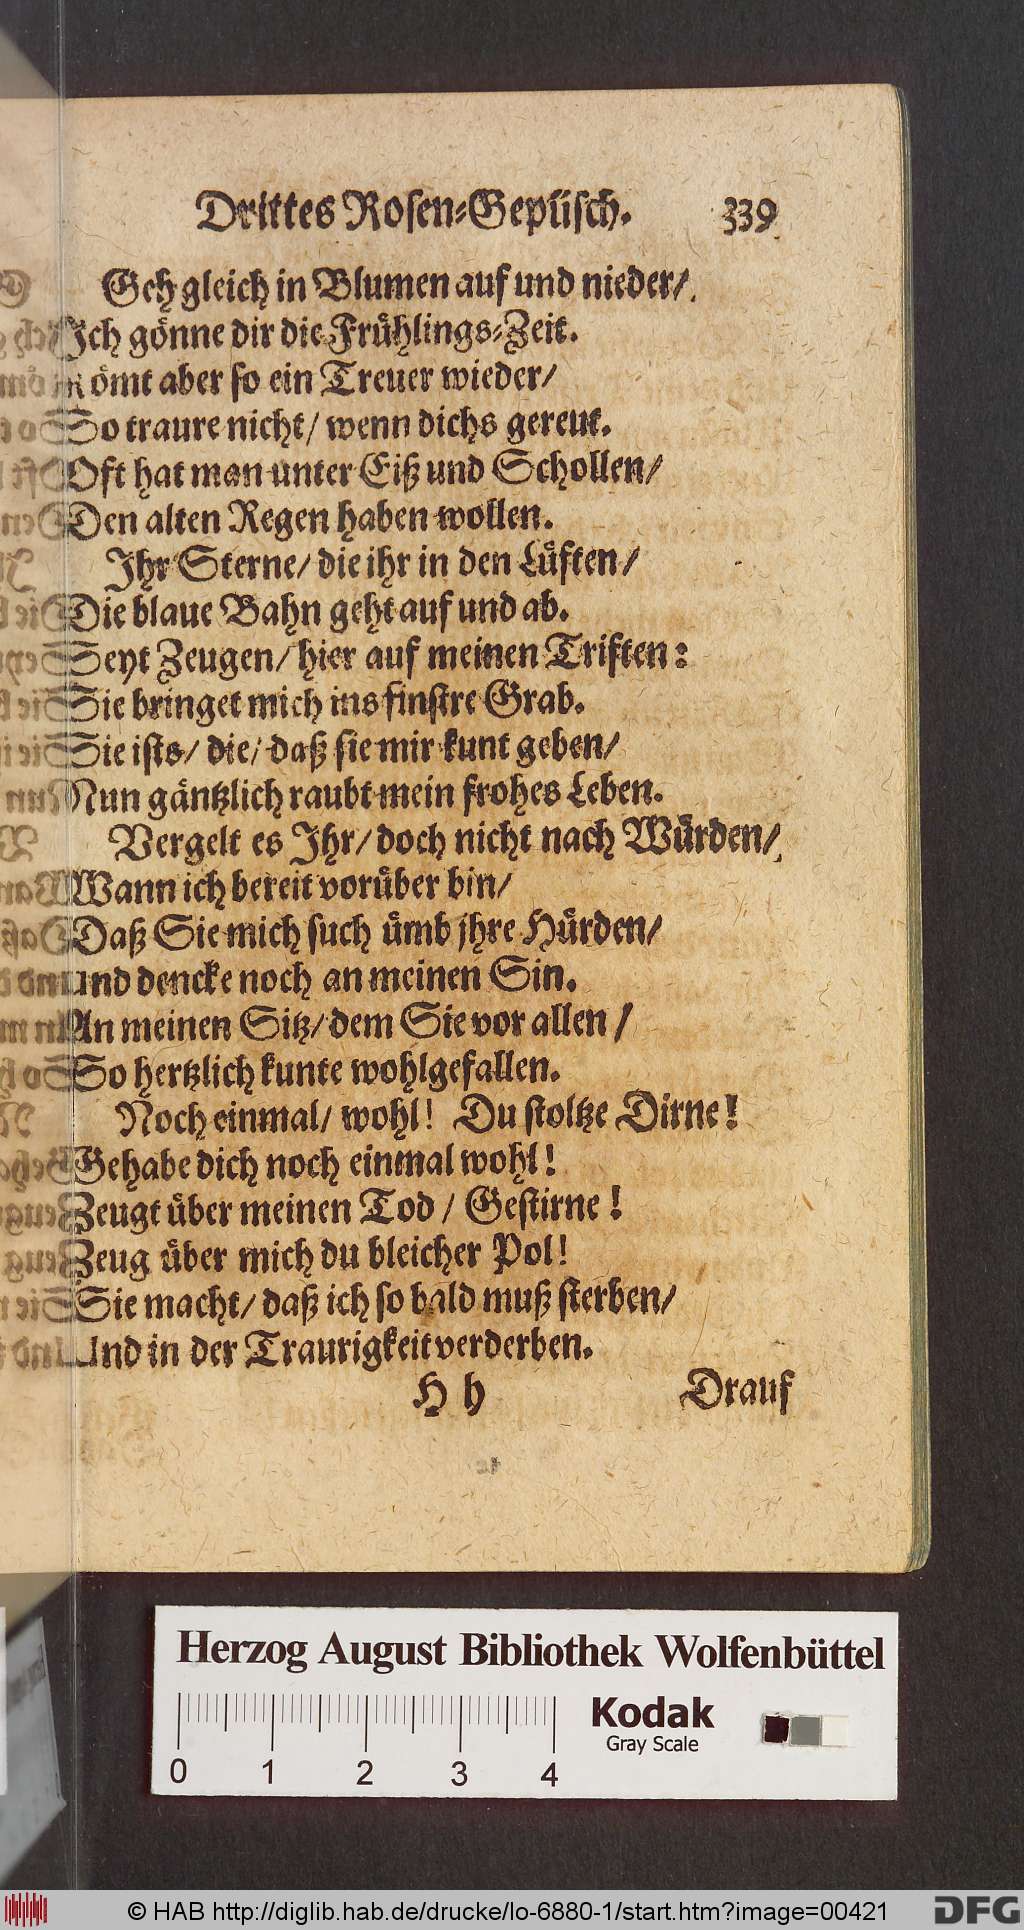 Drittes Rosen-Gepüsch. 339
Geh gleich in Blumen auf und nieder/
Ich gönne dir die Frühlings-Zeit.
Kömt aber so ein Treuer wieder/
So traure nicht/ wenn dichs gereut.
Oft hat man unter Eiß und Schollen/
Den alten Regen haben wollen.
Ihr Sterne/ die ihr in den Lüften/
Die blaue Bahn geht auf und ab.
Seyt Zeugen/ hier auf meinen Triften:
Sie bringet mich ins finstre Grab.
Sie ists/ die/ daß sie mir kunt geben/
Nun gäntzlich raubt mein frohes Leben.
Vergelt es Ihr/ doch nicht nach Würden/
Wann ich bereit vorüber bin/
Daß Sie mich such ümb jhre Hürden/
und dencke noch an meinen Sin.
An meinen Sitz/ dem Sie vor allen/
So hertzlich kunte wohlgefallen.
Noch einmal/ wohl! Du stoltze Dirne!
Gehabe dich noch einmal wohl!
Zeugt über meinen Tod/ Gestirne!
Zeug über mich du bleicher Pol!
Sie macht/ daß ich so bald muß sterben/
Und in der Traurigkeit verderben.
H h Drauf
Herzog August Bibliothek Wolfenbüttel
Kodak
Gray Scale
0 1 2 3 4
© HAB http://diglib.hab.de/drucke/lo-6880-1/start.htm?image=00421
DFG